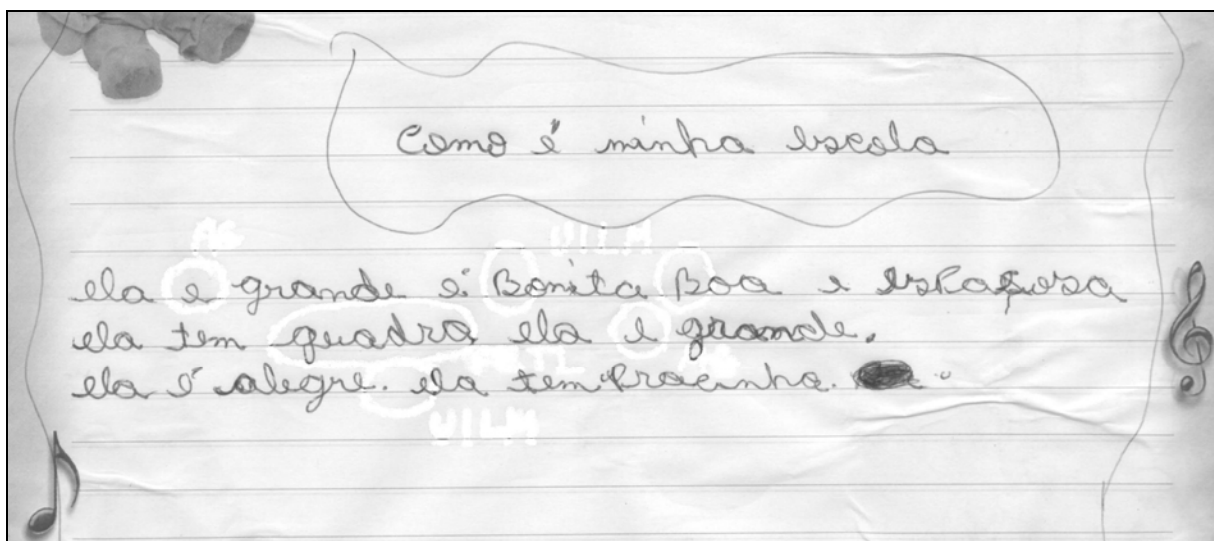 Como é minha escola
AG
UILM
ela e grande é Bonita Boa e espaçosa
ela tem quadra ela e grande.
ela é alegre. ela tem Pracinha.
UILM